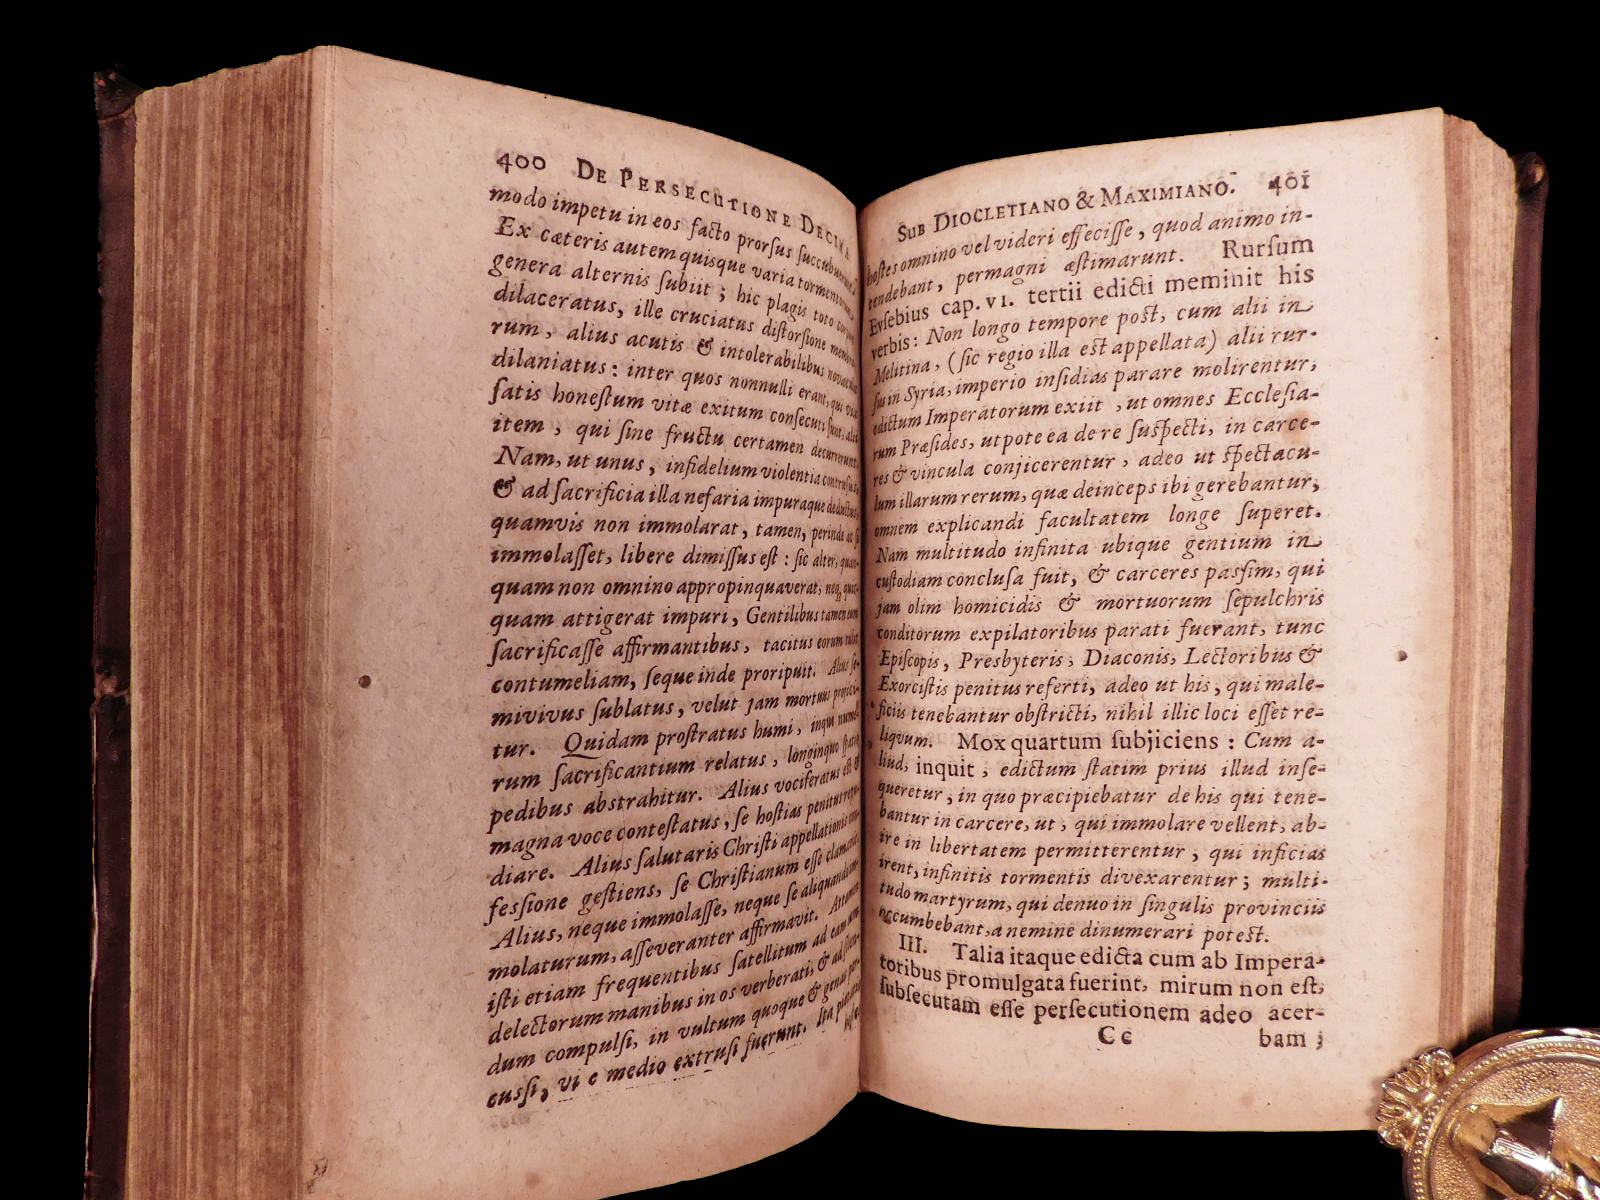 400 DE PERSECUTIONE DECIMA
modo impetu in eos facto prorſus ſuccubuerunt.
Ex cæteris autem quisque varia tormentorum
genera alternis ſubiit ; hic plagis toto corpore
dilaceratus, ille cruciatus diſtorſione membro-
rum, alius acutis & intolerabilibus novaculis
dilaniatus : inter quos nonnulli erant, qui vix
ſatis honeſtum vitæ exitum conſecuti ſunt, alii
item , qui ſine fructu certamen decurrerunt.
Nam, ut unus , infidelium violentia contruſus,
& ad ſacrificia illa nefaria impuraque deductus,
quamvis non immolarat , tamen, perinde ac ſi
immolaſſet, libere dimiſſus eſt : ſic alter, quan-
quam non omnino appropinquaverat, neq; quic-
quam attigerat impuri, Gentilibus tamen eum
ſacrificaſſe affirmantibus, tacitus eorum tulit
contumeliam, ſeque inde proripuit. Alius ſe-
mivivus ſublatus, velut jam mortuus projici-
tur. Quidam proſtratus humi, inque nume-
rum ſacrificantium relatus , longinquo ſpatio
pedibus abstrahitur. Alius vociferatus eſt &
magna voce conteſtatus, ſe hoſtias penitus repu-
diare. Alius ſalutaris Chriſti appellationis con-
feſſione geſtiens, ſe Chriſtianum eſſe clamavit.
Alius, neque immolaſſe, neque ſe aliquando im-
molaturum, aſſeveranter affirmavit. Attamen
iſti etiam frequentibus ſatellitum ad eam rem
delectorum manibus in os verberati, & ad ſilen-
dum compulſi, in vultum quoque & genas per-
cuſſi, vi e medio extruſi fuerunt. Ita pietatis
hoſtes
SUB DIOCLETIANO & MAXIMIANO. 401
hoſtes omnino vel videri effeciſſe , quod animo in-
tendebant, permagni æſtimarunt. Rurſum
Evſebius cap. VI. tertii edicti meminit his
verbis : Non longo tempore poſt, cum alii in
Melitina, (ſic regio illa eſt appellata) alii rur-
ſus in Syria, imperio inſidias parare molirentur,
edictum Imperatorum exiit , ut omnes Eccleſia-
rum Præſides, utpote ea de re ſuſpecti, in carce-
res & vincula conjicerentur , adeo ut ſpectacu-
lum illarum rerum, quæ deinceps ibi gerebantur,
omnem explicandi facultatem longe ſuperet.
Nam multitudo infinita ubique gentium in
cuſtodiam concluſa fuit, & carceres paſſim, qui
jam olim homicidis & mortuorum ſepulchris
conditorum expilatoribus parati fuerant, tunc
Epiſcopis, Presbyteris, Diaconis, Lectoribus &
Exorciſtis penitus referti, adeo ut his , qui male-
ficiis tenebantur obſtricti, nihil illic loci eſſet re-
liqvum. Mox quartum ſubjiciens : Cum a-
liud, inquit , edictum ſtatim prius illud inſe-
queretur , in quo præcipiebatur de his qui tene-
bantur in carcere, ut , qui immolare vellent, ab-
ire in libertatem permitterentur , qui inficias
irent, infinitis tormentis divexarentur ; multi-
tudo martyrum, qui denuo in ſingulis provinciis
occumbebant, a nemine dinumerari poteſt.
III. Talia itaque edicta cum ab Impera-
toribus promulgata fuerint, mirum non eſt,
ſubſecutam eſſe perſecutionem adeo acer-
Cc bam ;